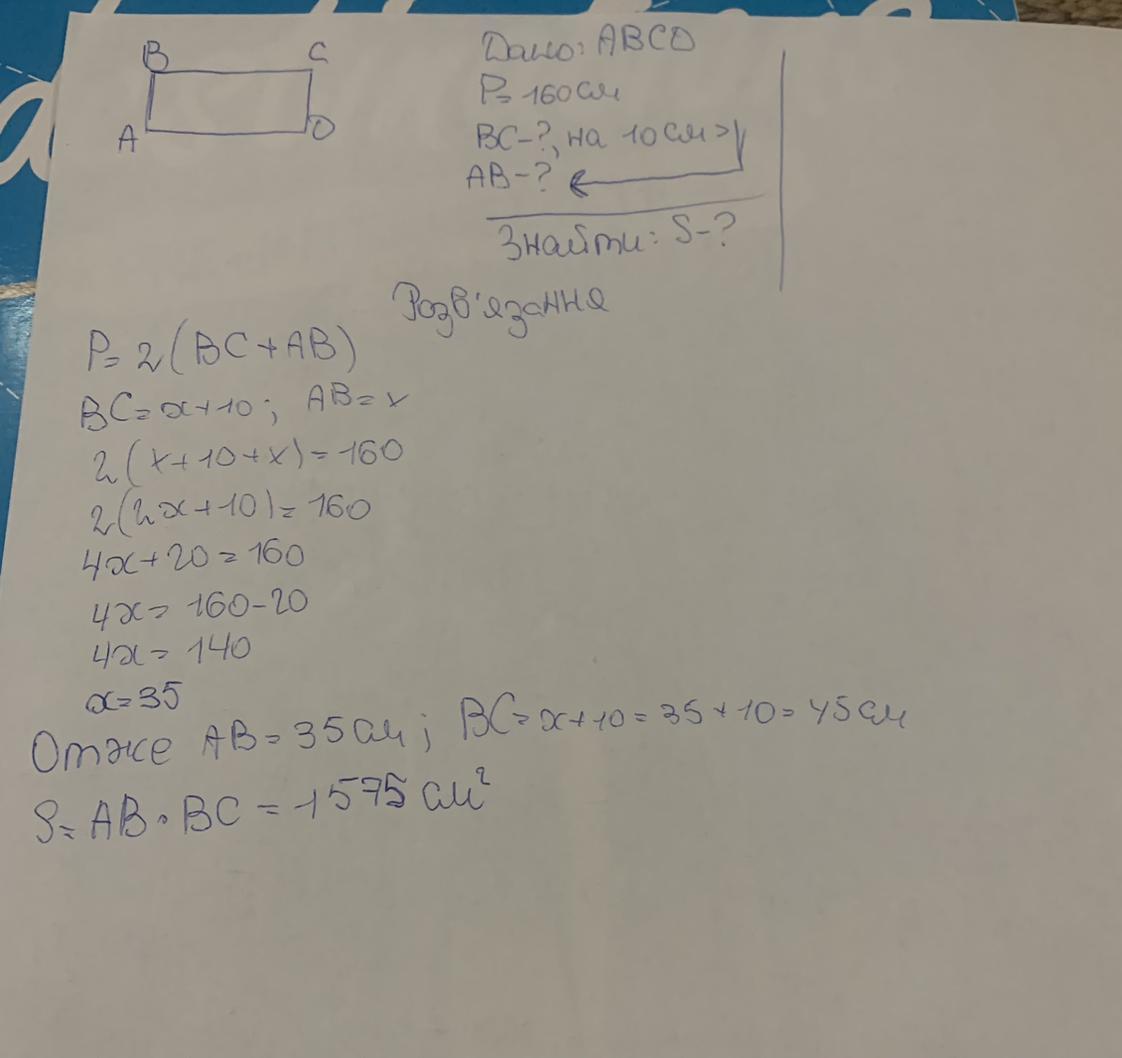 B C
A D
Дано: ABCD
P= 160см
BC-?, на 10см>
AB-?
Знайти: S-?
Розв'язання
P= 2(BC+AB)
BC=x+10; AB=x
2(x+10+x)=160
2(2x+10)=160
4x+20=160
4x= 160-20
4x= 140
x=35
Отже AB=35см; BC=x+10=35+10=45см
S= AB·BC=1575см²